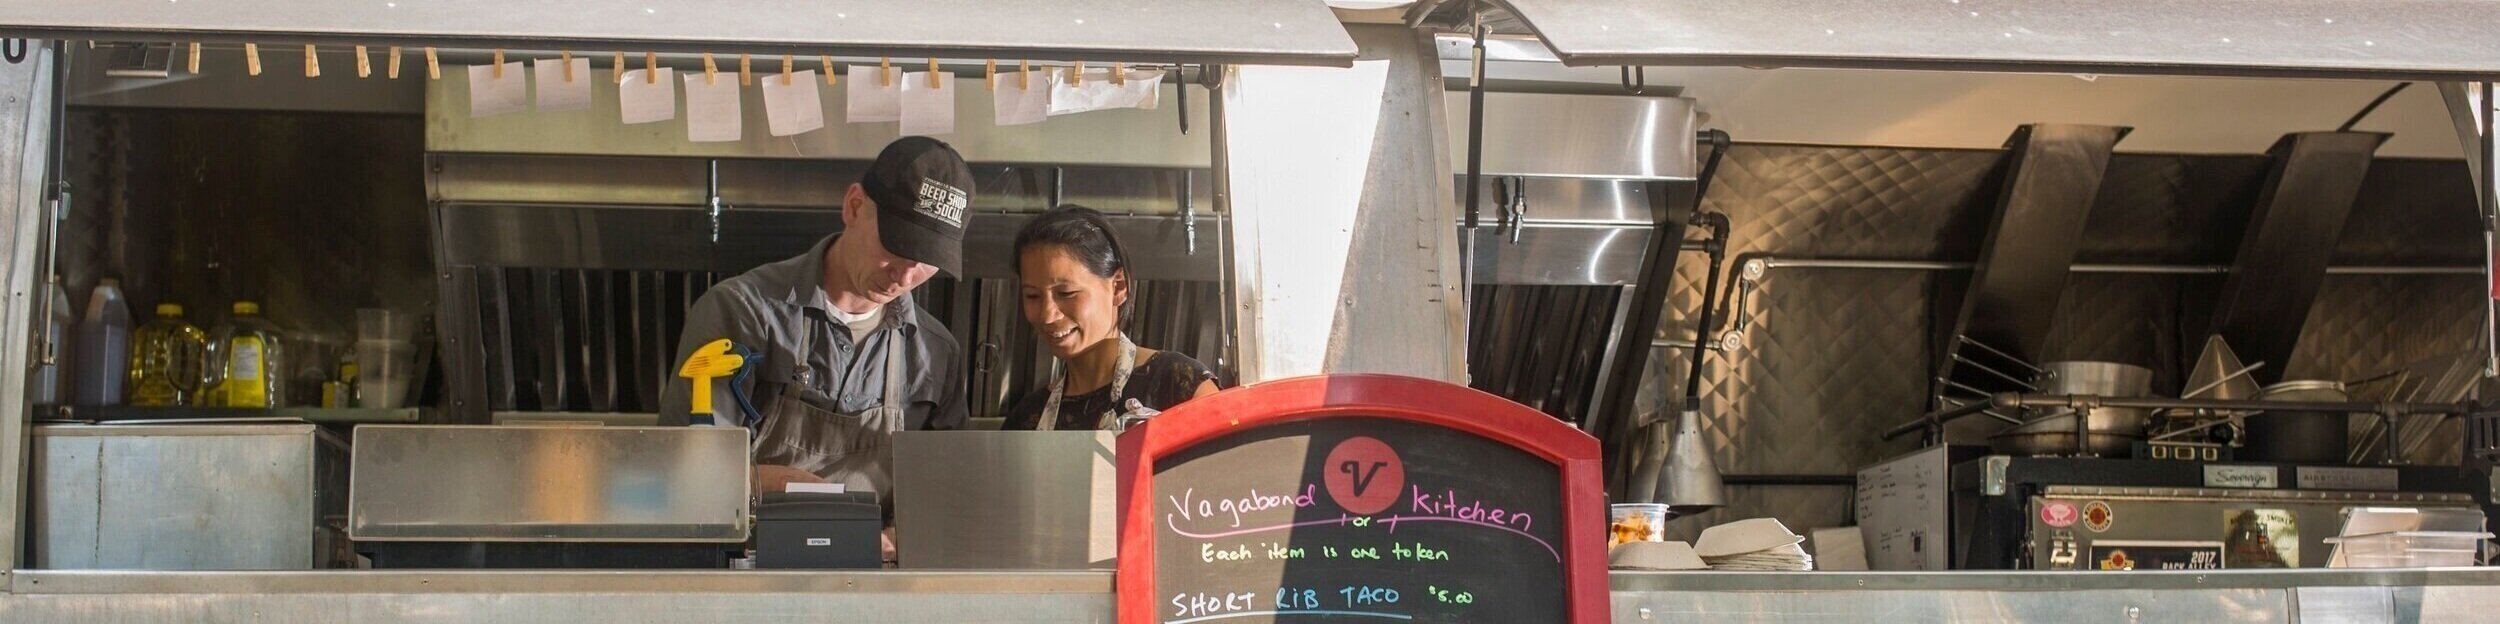 BEER SHOP
AND SOCIAL
V
Vagabond Kitchen
or
Each item is one token
SHORT RIB TACO $5.00
EPSON
Sovereign
2017